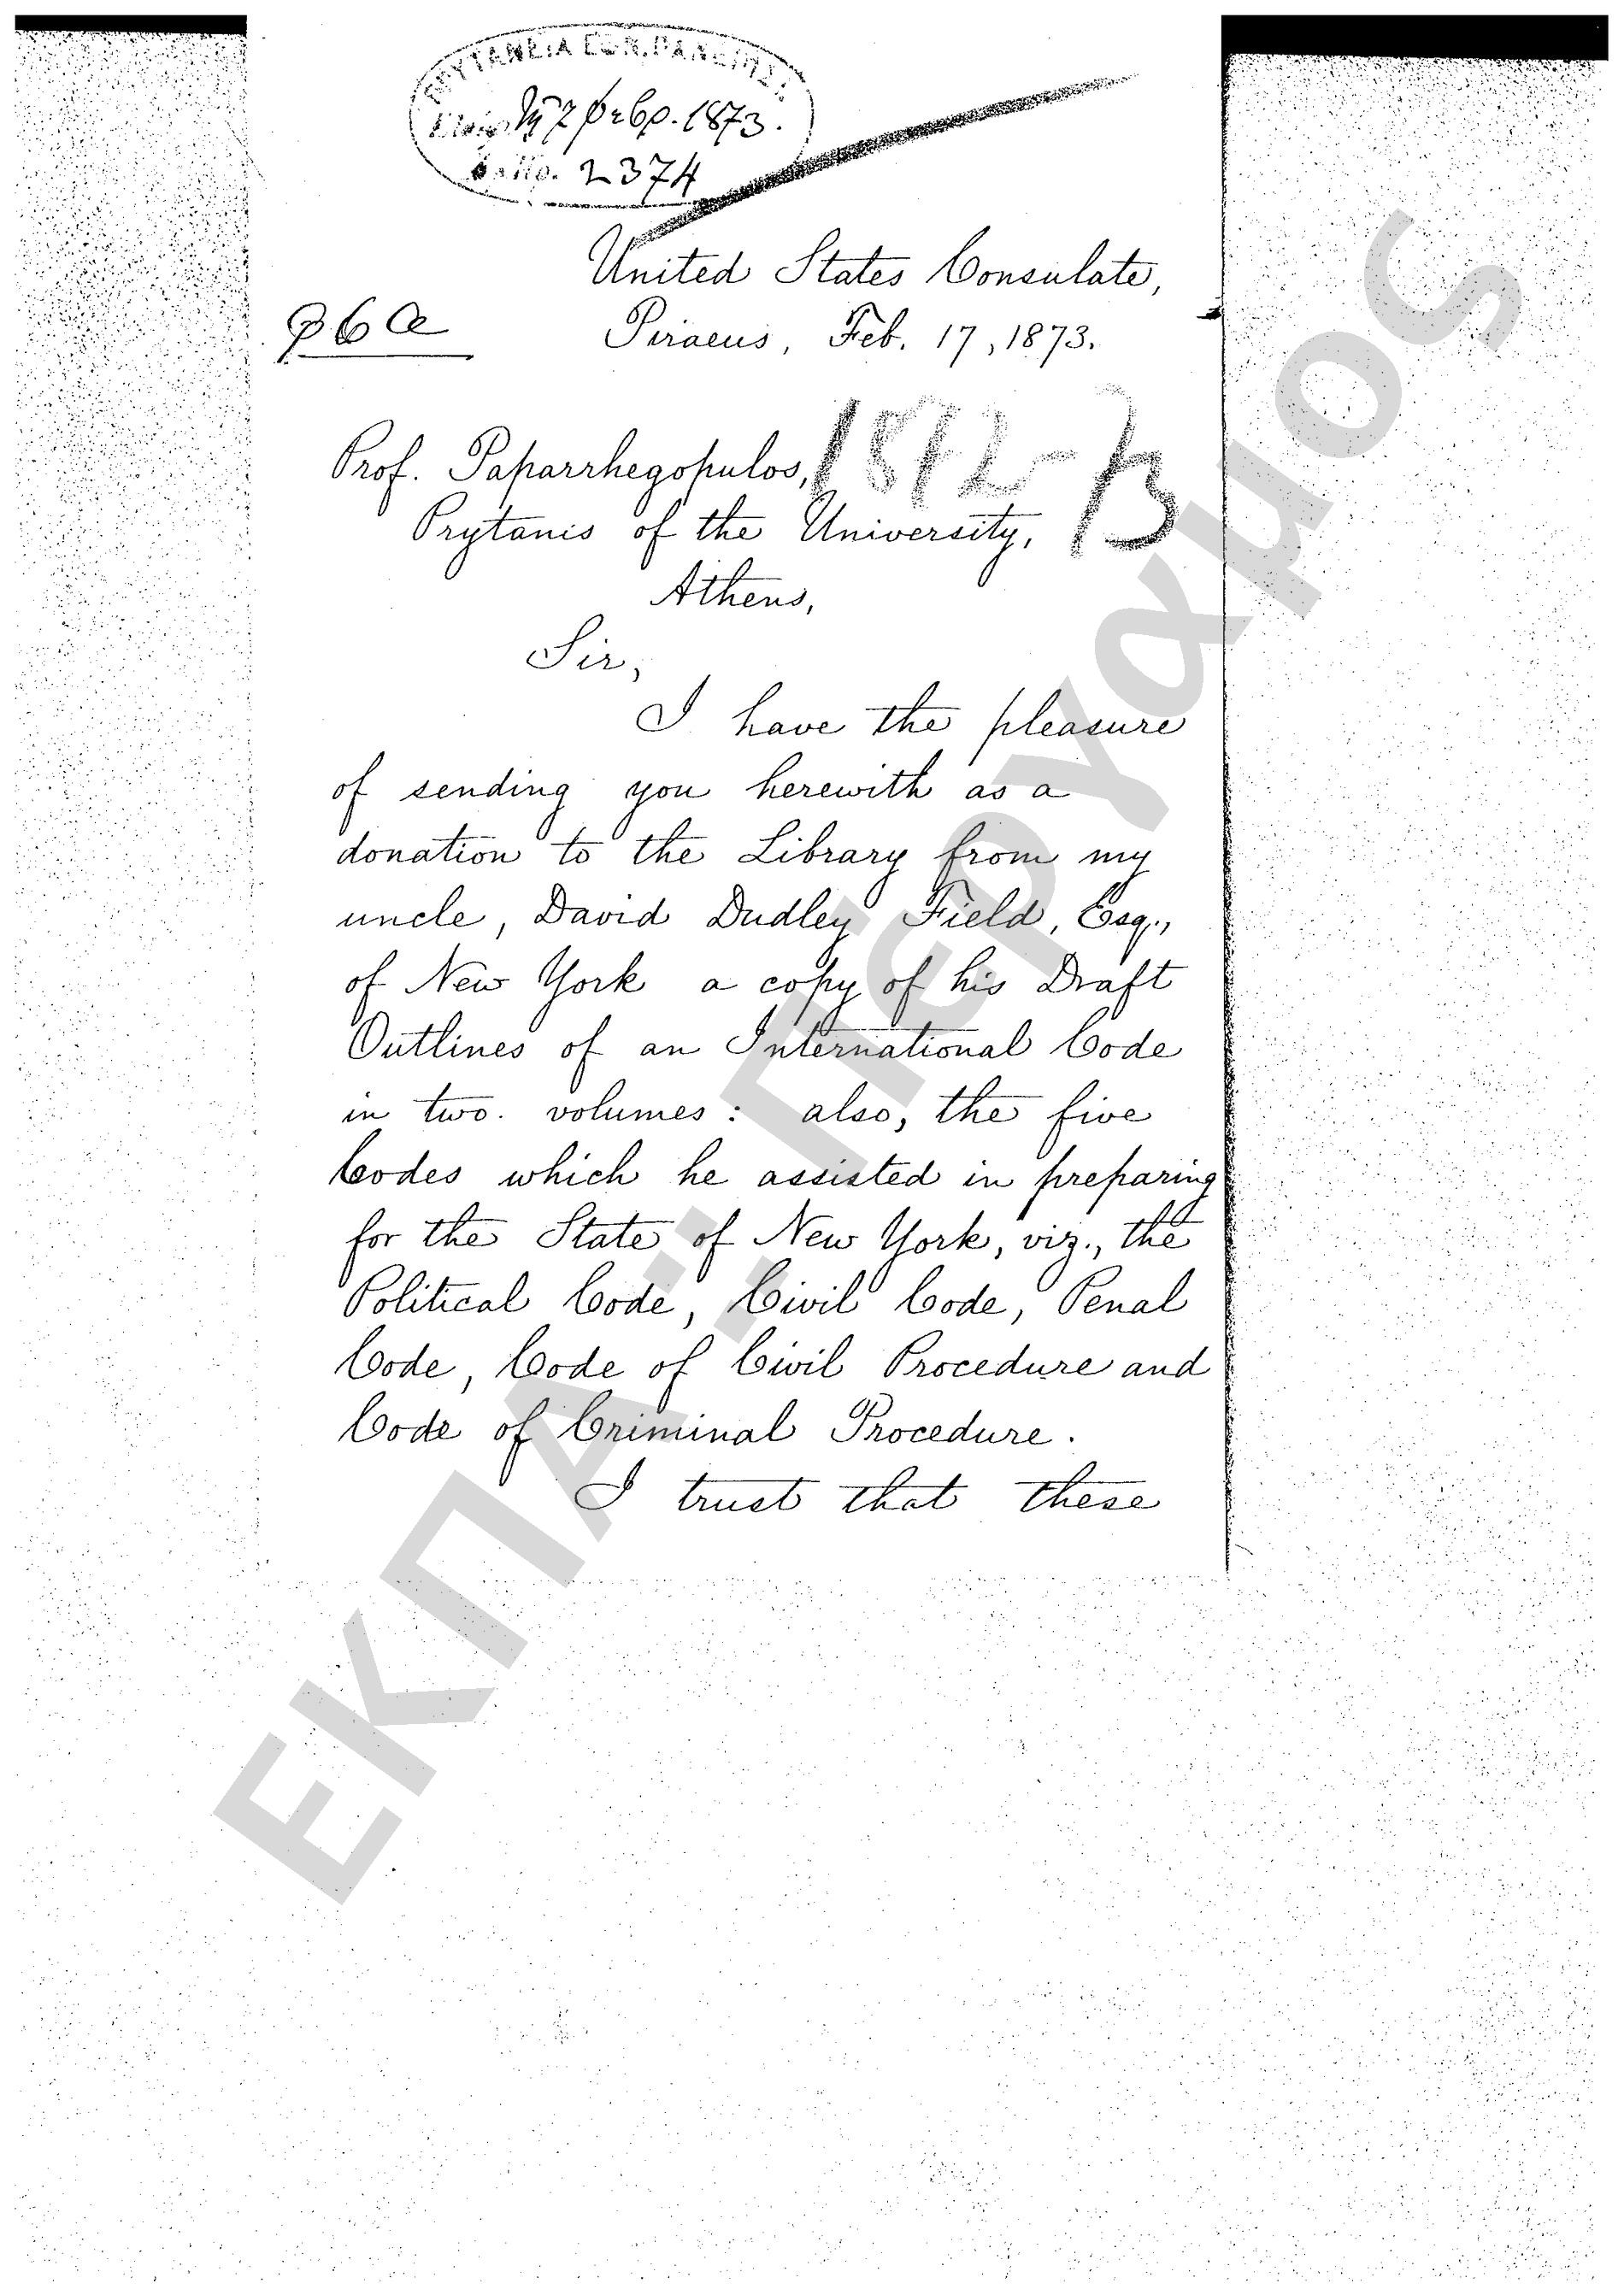 7 Φεβρ. 1873.
2374
United States Consulate,
Piraeus, Feb. 17, 1873.
Prof. Paparrhegopulos,
Prytanis of the University,
Athens,
Sir,
I have the pleasure
of sending you herewith as a
donation to the Library from my
uncle, David Dudley Field, Esq.,
of New York a copy of his Draft
Outlines of an International Code
in two volumes: also, the five
Codes which he assisted in preparing
for the State of New York, viz., the
Political Code, Civil Code, Penal
Code, Code of Civil Procedure and
Code of Criminal Procedure.
I trust that these